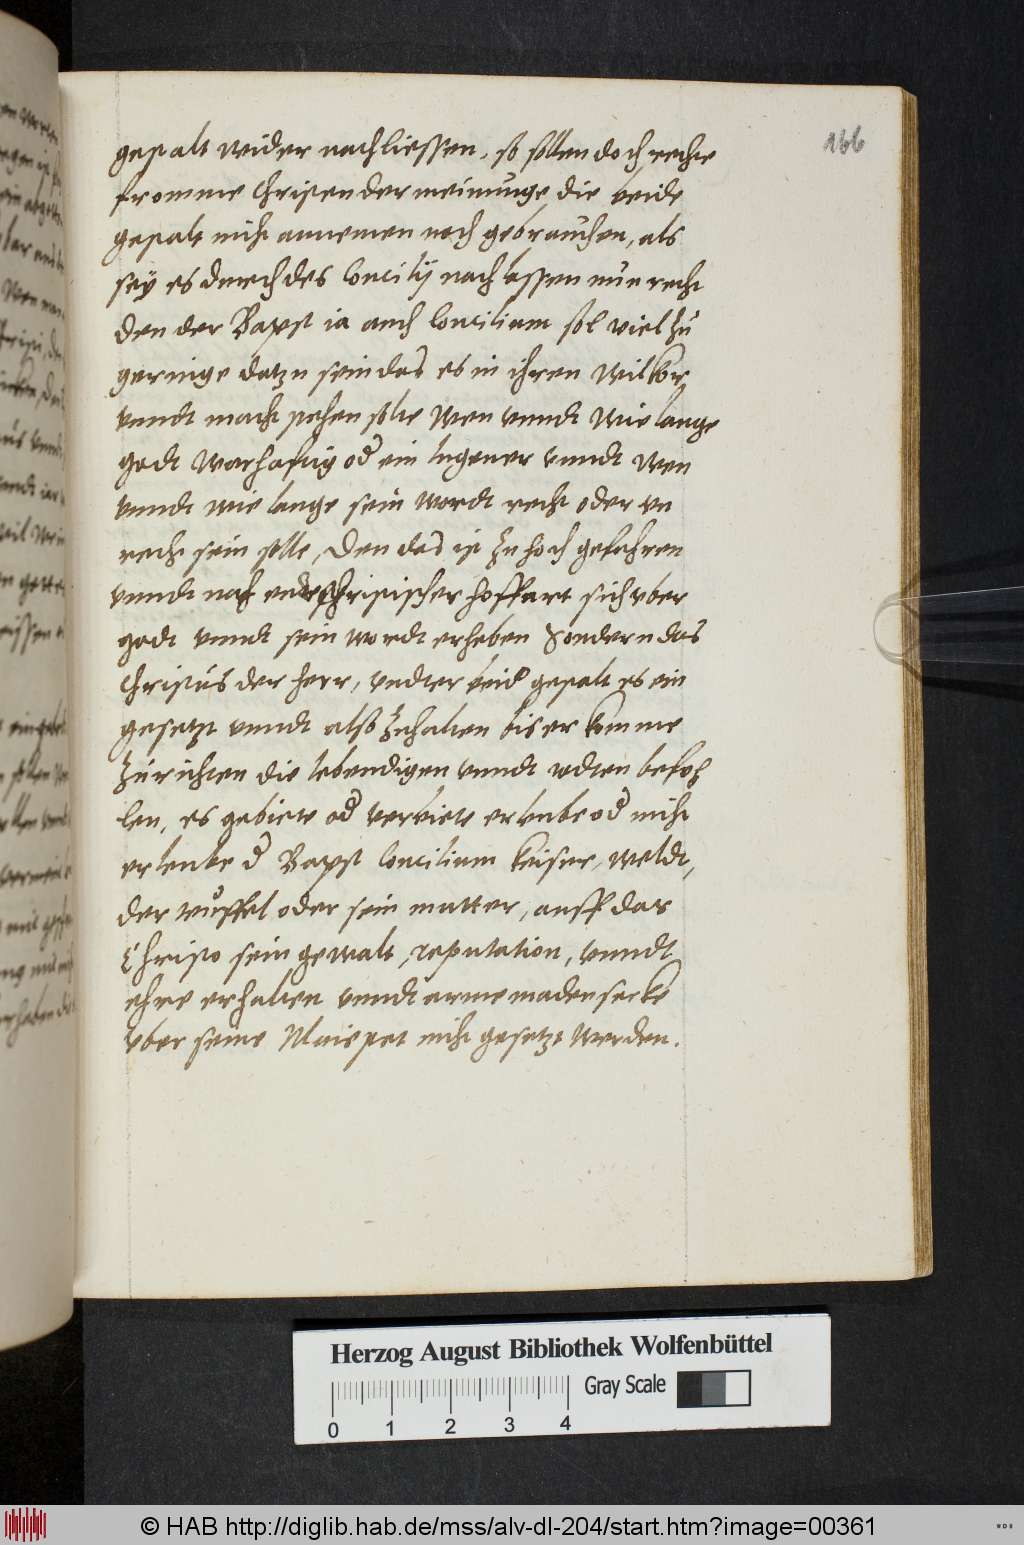 166
gestalt wider nachliessen, so sollen doch rechte
fromme Christen der meinunge, die beide
gestalt nicht annemen noch gebrauchen, als
sey es durch des Concilij nachlassen nun recht
den der Bapst ia auch Concilium sol viel zu
geringe datzu sein das es in ihren wilkör
vnndt macht stehen solte wen vnndt wie lange
godt warhaftig od ein lugener vnndt wen
vnndt wie lange sein wordt recht oder vn
recht sein solle, Den das ist zu hoch gefahren
vnndt nach endechristischer hoffart sich vber
godt vnndt sein wordt erheben Sondern das
Christus der herr, vndter beid gestalt es ein
gesetzt vnndt also zuhalten bis er komme
zurichten die lebendigen vnndt todten befoh
len, es gebiete od verbiete erlaube od nicht
erlaube d Bapst Concilium keiser, weldt,
der teuffel oder sein mutter, auff das
Christo sein gewalt, reputation, vnndt
ehre erhalten vnndt arme madensecke
vber seine Maiestet nicht gesetzt werden.
Herzog August Bibliothek Wolfenbüttel
Gray Scale
0 1 2 3 4
© HAB http://diglib.hab.de/mss/alv-dl-204/start.htm?image=00361